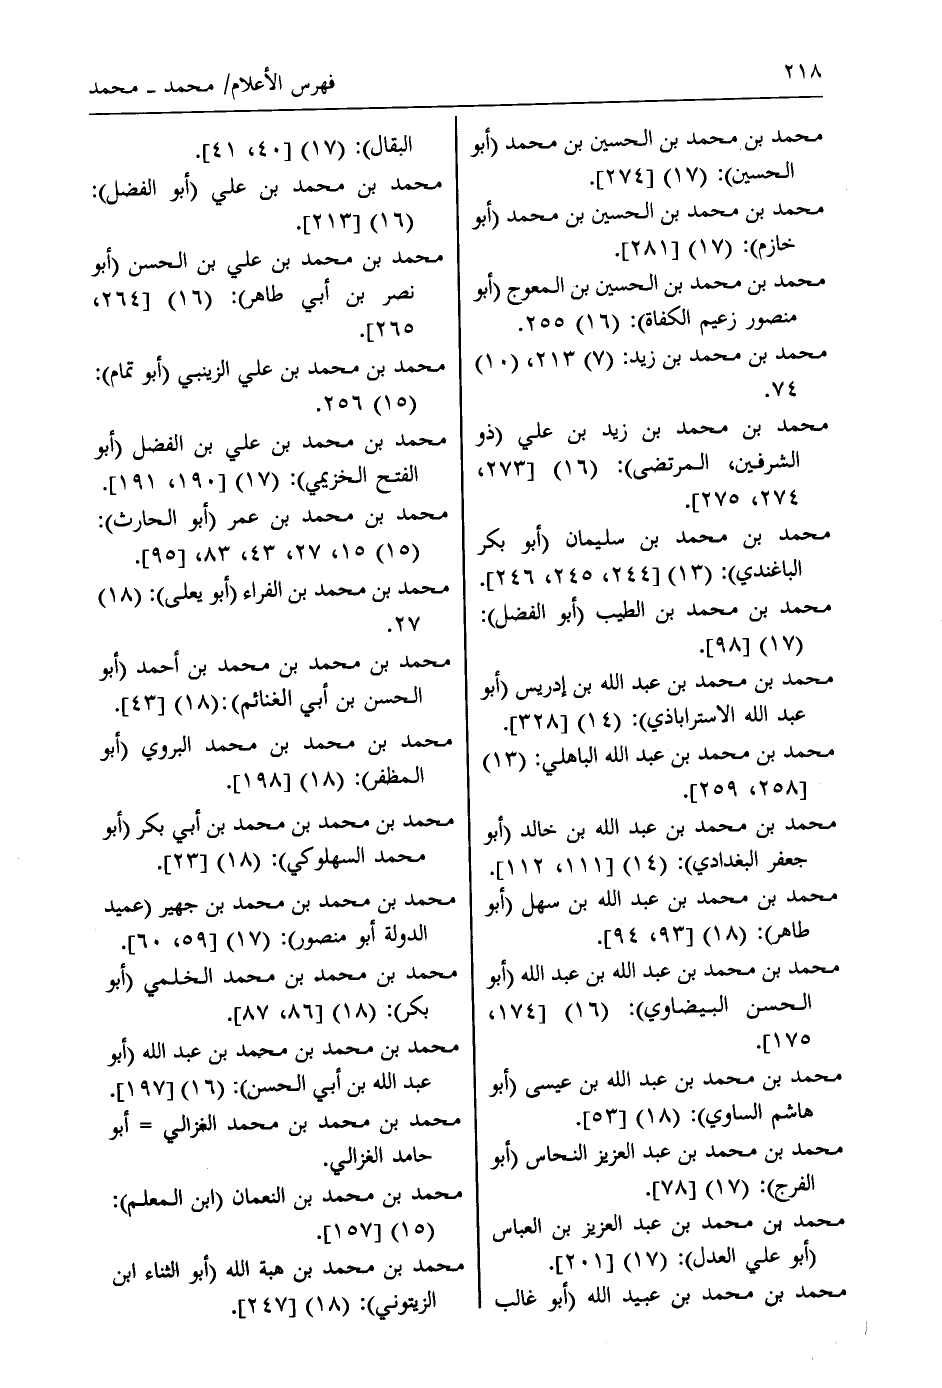 ٢١٨
فهرس الأعلام/ محمد ـ محمد
محمد بن محمد بن الحسين بن محمد (أبو
الحسين): (١٧) [٢٧٤].
محمد بن محمد بن الحسين بن محمد (أبو
خازم): (١٧) [٢٨١].
محمد بن محمد بن الحسين بن المعوج (أبو
منصور زعيم الكفاة): (١٦) ٢٥٥.
محمد بن محمد بن زيد: (٧) ٢١٣، (١٠)
٧٤.
محمد بن محمد بن زيد بن علي (ذو
الشرفين، المرتضى): (١٦) [٢٧٣،
٢٧٤، ٢٧٥].
محمد بن محمد بن سليمان (أبو بكر
الباغندي): (١٣) [٢٤٤، ٢٤٥، ٢٤٦].
محمد بن محمد بن الطيب (أبو الفضل):
(١٧) [٩٨].
محمد بن محمد بن عبد الله بن إدريس (أبو
عبد الله الاستراباذي): (١٤) [٣٢٨].
محمد بن محمد بن عبد الله الباهلي: (١٣)
[٢٥٨، ٢٥٩].
محمد بن محمد بن عبد الله بن خالد (أبو
جعفر البغدادي): (١٤) [١١١، ١١٢].
محمد بن محمد بن عبد الله بن سهل (أبو
طاهر): (١٨) [٩٣، ٩٤].
محمد بن محمد بن عبد الله بن عبد الله (أبو
الحسن البيضاوي): (١٦) [١٧٤،
١٧٥].
محمد بن محمد بن عبد الله بن عيسى (أبو
هاشم الساوي): (١٨) [٥٣].
محمد بن محمد بن عبد العزيز النحاس (أبو
الفرج): (١٧) [٧٨].
محمد بن محمد بن عبد العزيز بن العباس
(أبو علي العدل): (١٧) [٢٠١].
محمد بن محمد بن عبيد الله (أبو غالب
البقال): (١٧) [٤٠، ٤١].
محمد بن محمد بن علي (أبو الفضل):
(١٦) [٢١٣].
محمد بن محمد بن علي بن الحسن (أبو
نصر بن أبي طاهر): (١٦) [٢٦٤،
٢٦٥].
محمد بن محمد بن علي الزينبي (أبو تمام):
(١٥) ٢٥٦.
محمد بن محمد بن علي بن الفضل (أبو
الفتح الخزيمي): (١٧) [١٩٠، ١٩١].
محمد بن محمد بن عمر (أبو الحارث):
(١٥) ١٥، ٢٧، ٤٣، ٨٣، [٩٥].
محمد بن محمد بن الفراء (أبو يعلى): (١٨)
٢٧.
محمد بن محمد بن محمد بن أحمد (أبو
الحسن بن أبي الغنائم):(١٨) [٤٣].
محمد بن محمد بن محمد البروي (أبو
المظفر): (١٨) [١٩٨].
محمد بن محمد بن محمد بن أبي بكر (أبو
محمد السهلوكي): (١٨) [٢٣].
محمد بن محمد بن محمد بن جهير (عميد
الدولة أبو منصور): (١٧) [٥٩، ٦٠].
محمد بن محمد بن محمد الخلمي (أبو
بكر): (١٨) [٨٦، ٨٧].
محمد بن محمد بن محمد بن عبد الله (أبو
عبد الله بن أبي الحسن): (١٦) [١٩٧].
محمد بن محمد بن محمد الغزالي = أبو
حامد الغزالي.
محمد بن محمد بن النعمان (ابن المعلم):
(١٥) [١٥٧].
محمد بن محمد بن هبة الله (أبو الثناء ابن
الزيتوني): (١٨) [٢٤٧].